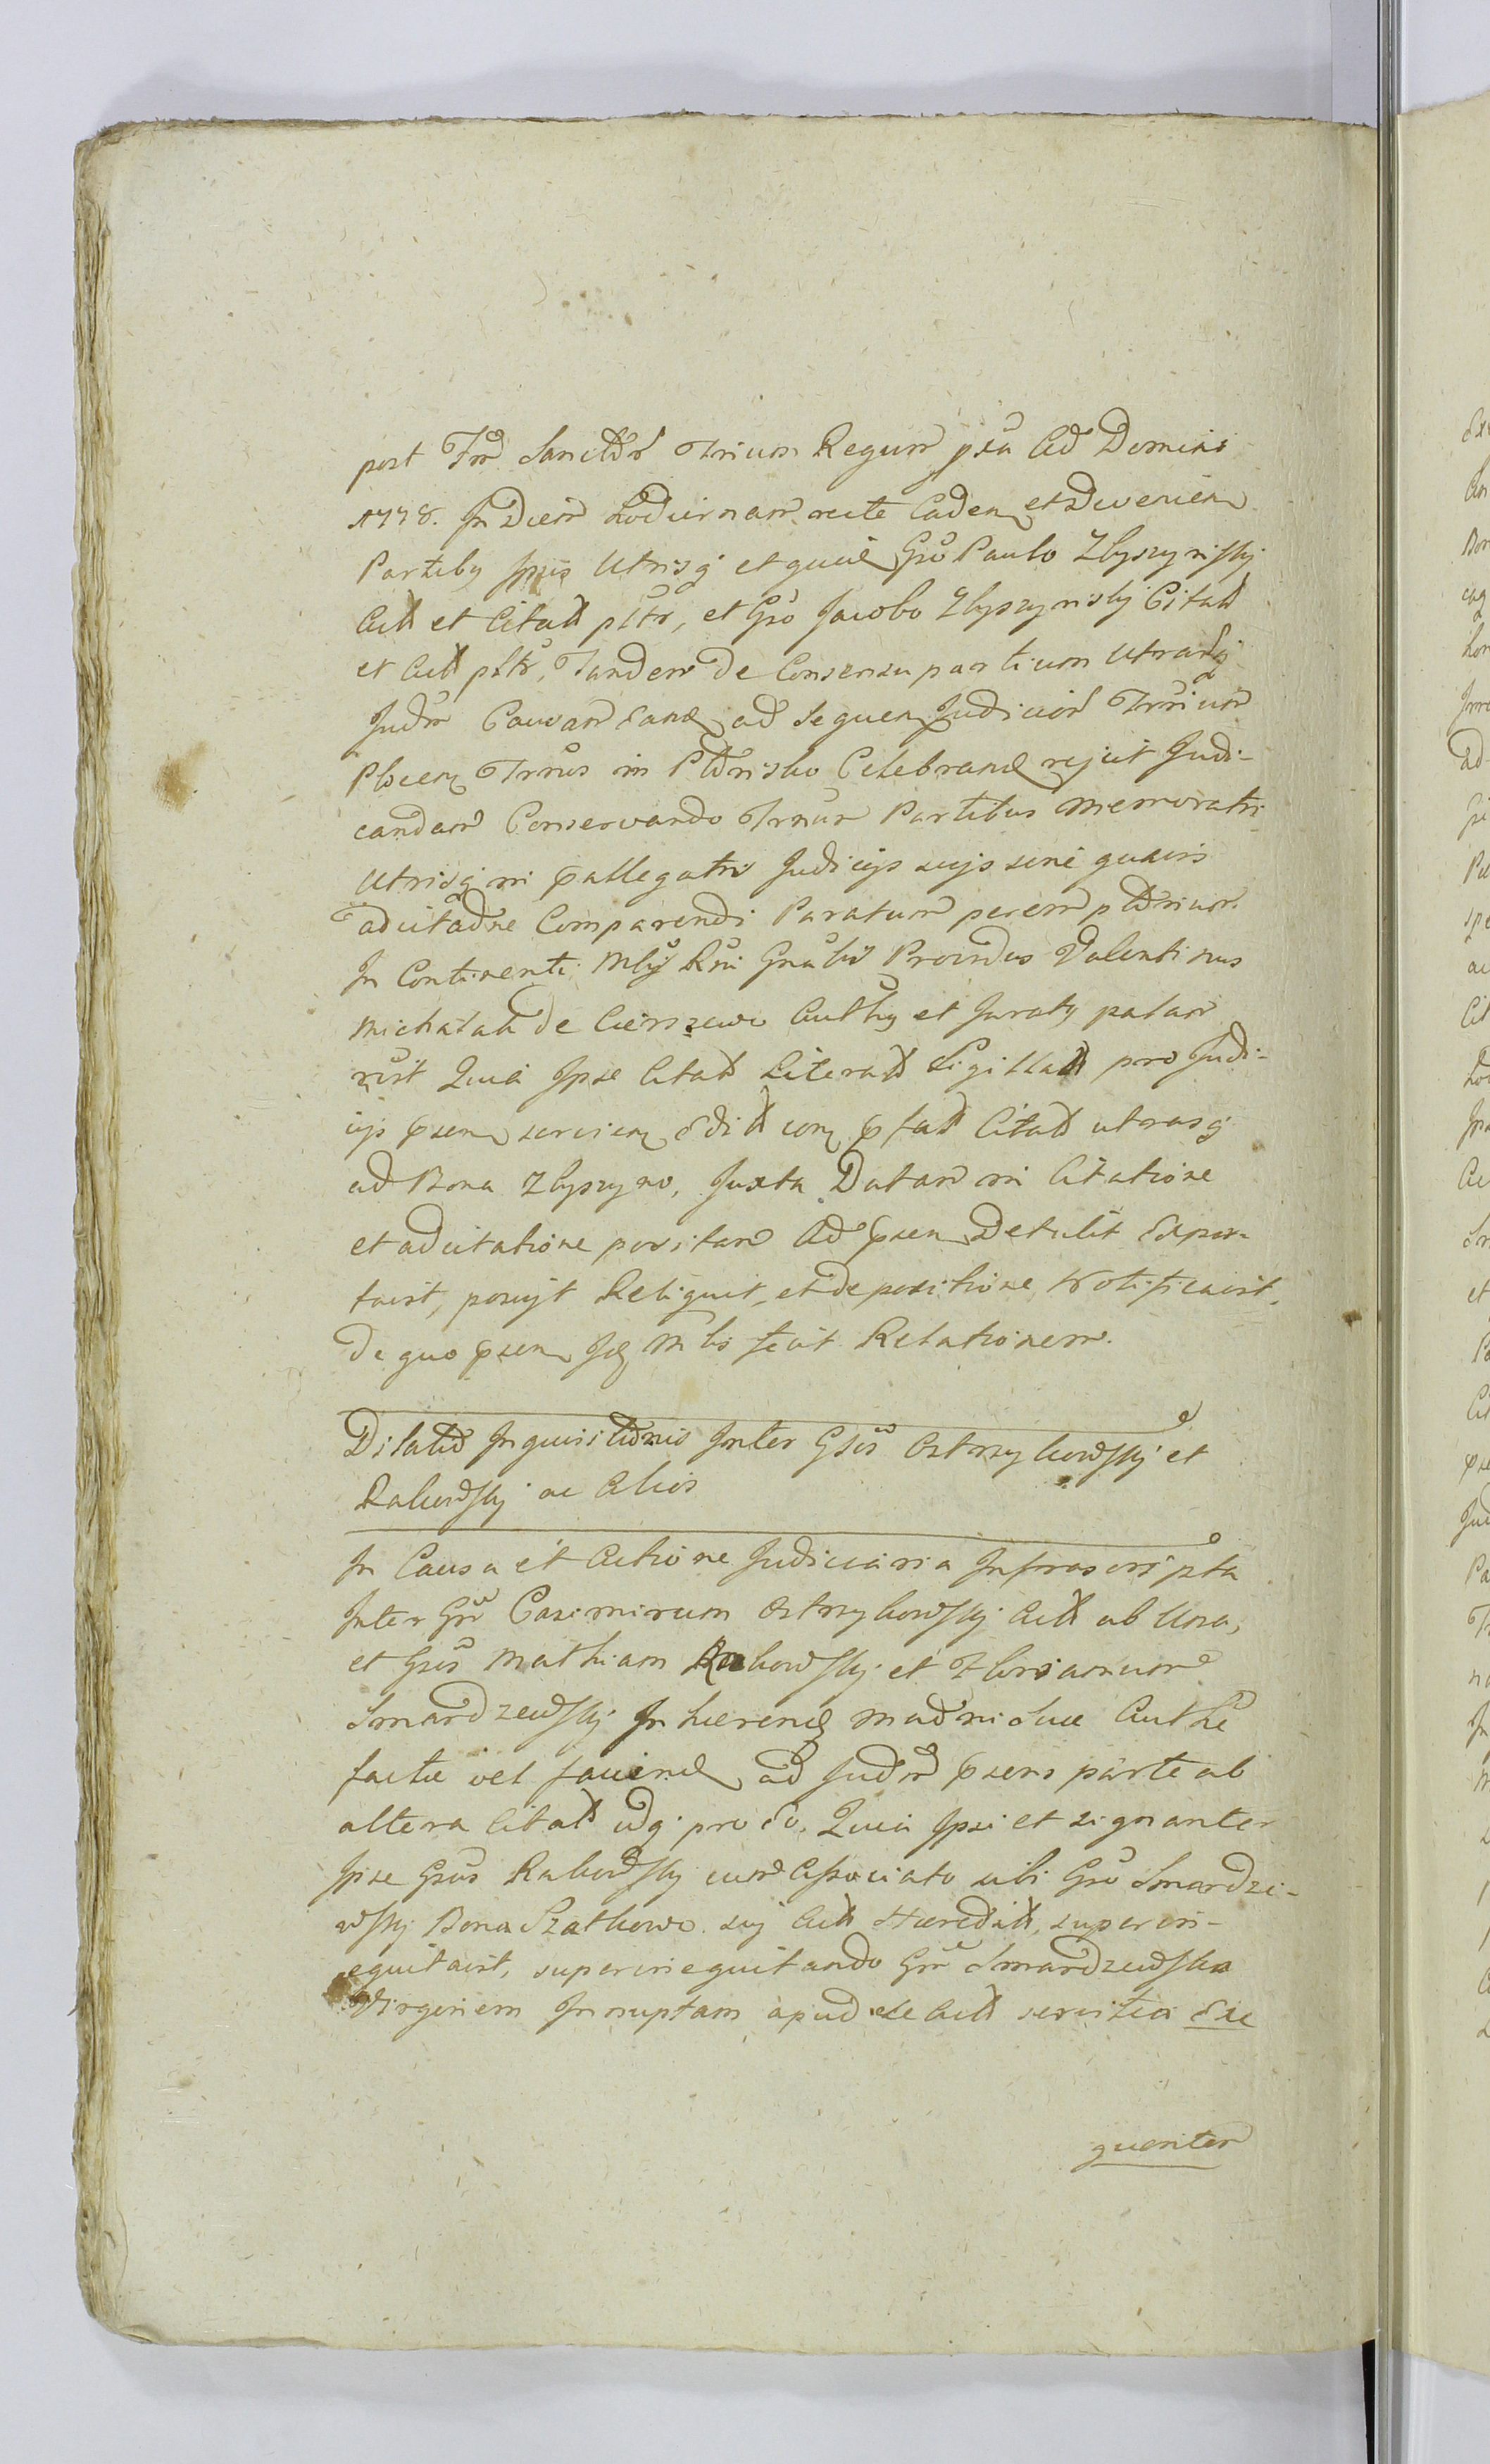 post Frō Sanctor Trium Regum pxa Ad Domini
1778. In Diem hodiernam recte Caden et Devenien
Partiby Ipsis Utrisq et quidē Gso Paulo Zbyszyńskj
Actt et Citatt pltr, et Gso Jacobo Zbyszynskj Citatt
et Actt pltr, Tandem De Consensu partium Utrarq
Judm Causam eand ad Sequen Judicior Trrium
Plocen Trrus in Pltrisko Celebrand rejcit Judi-
candam Conservando Trnum Partibus memoratis
Utrisq in pallegatis Judicijs suis sine quavis
adcitadne Comparendi Paratum perem ptorium.
In Continenti Mlis Rni Gnalis Providus Valentinus
Michalak De Cierszewo Authy et Juraty palam
rsit Quia Ipse Citatt Literatt Sigillatt pro Judi-
cijs psen servien Editt con pfatt Citatt utrasq
ad Bona Zbyszyno, Juxta Datam in Citatione
et adcitatione positam Ad psen Detulit Expor-
tavit, posuit Reliquit, et de positione Notificavit,
De quo psen Jdē Mlis fecit Relationem.
Dilatio Inquisitionis Inter Gsos Ostrzykowskj et
Rakowskj ac Alios
In Causa et Actione Judiciaria Infrascripta
Inter Gsm Casimirum Ostrzykowskj Actt ab Una,
et Gsos Mathiam Rakowskj et Florianum
Smardzewskj In hærend madni suæ Authæ
factæ vel faciend ad Judm psens parte ab
altera Citatt idq pro eo, Quia Ipsi et signanter
Ipse Gsus Rakowskj cum Associato sibi Gso Smardze-
wskj Bona Szatkowo suj Actt Hæreditt, superin-
equitavit, superinequitando Gsm Smardzewska
Virginem Innuptam apud se Actt servitia Exe
quentem